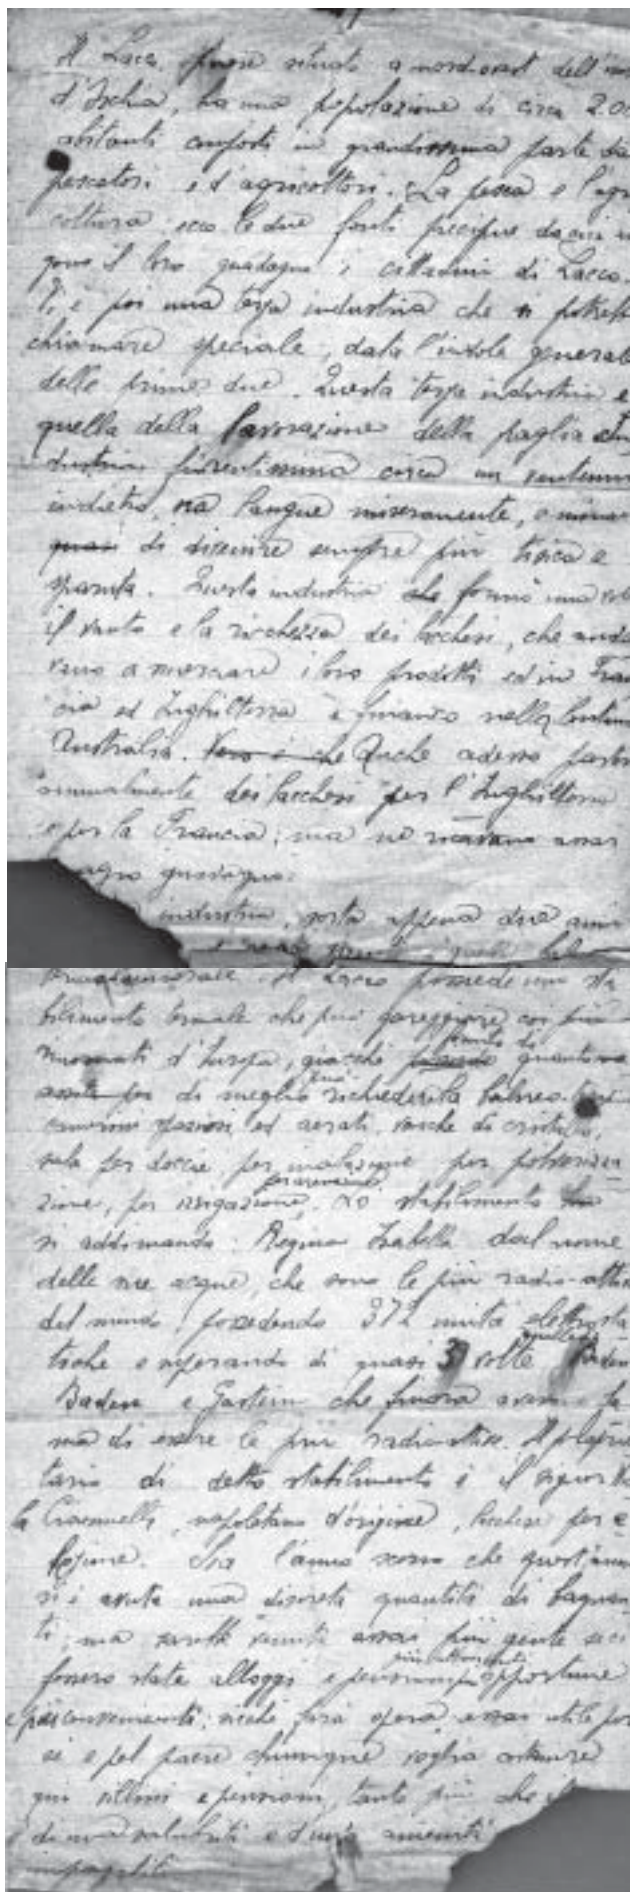 Il Lacco, situato a nord-ovest dell'iso
d'Ischia, ha una popolazione di circa 200
abitanti composti in grandissima parte da
pescatori e d'agricoltori. La pesca e l'agri
coltura ecco le due fonti precipue da cui
gono il loro guadagno i cittadini di Lacco.
Vi è poi una terza industria che si potrebb
chiamare speciale, data l'indole generale
delle prime due. Questa terza industria è
quella della lavorazione della paglia. In
dustria fiorentissima circa un ventenni
indietro, ora langue miseramente, e
quasi di divenire sempre più tisica e
sparuta. Questa industria che formò una vol
il vanto e la ricchezza dei lacchesi, che anda
vano a smerciare i loro prodotti ed in Fran
cia ed Inghilterra e financo nella lontana
Australia. Vero è che Anche adesso parton
annualmente dei lacchesi per l'Inghilterra
e per la Francia; ma ne ricavano assai
magro guadagno.
industria, sorta appena due anni

Il Lacco possiede uno sta
bilimento termale che può gareggiare coi più
rinomati d'Europa, giacchè fornito di quanto
di meglio può richieder la balneo-
camerini spaziosi ed aerati, vasche di cristallo,
sala per doccie, per inalazione per polverizza
zione, per irrigazione. Lo stabilimento
si addimanda: Regina Isabella dal nome
delle sue acque, che sono le più radio-attive
del mondo, possedendo 372 unità elettrosta
tiche e superando di quasi 3 volte quelle di Baden
Baden e Gastein che finora avevano fa
ma di essere le più radioattive. Il proprie
tario di detto stabilimento è il signor
napoletano d'origine, lacchese per e
lezione. Sia l'anno scorso che quest'anno
si è avuta una discreta quantità di bagnan
ti; ma sarebbe venuta assai più gente se ci
fossero state alloggi e pensioni più opportune
e più convenienti; sicchè farà opera assai utile per
sè e pel paese chiunque voglia costruire
qui villini e pensioni, tanto più che il
è di una salubrità e d'una amenità
impagabili